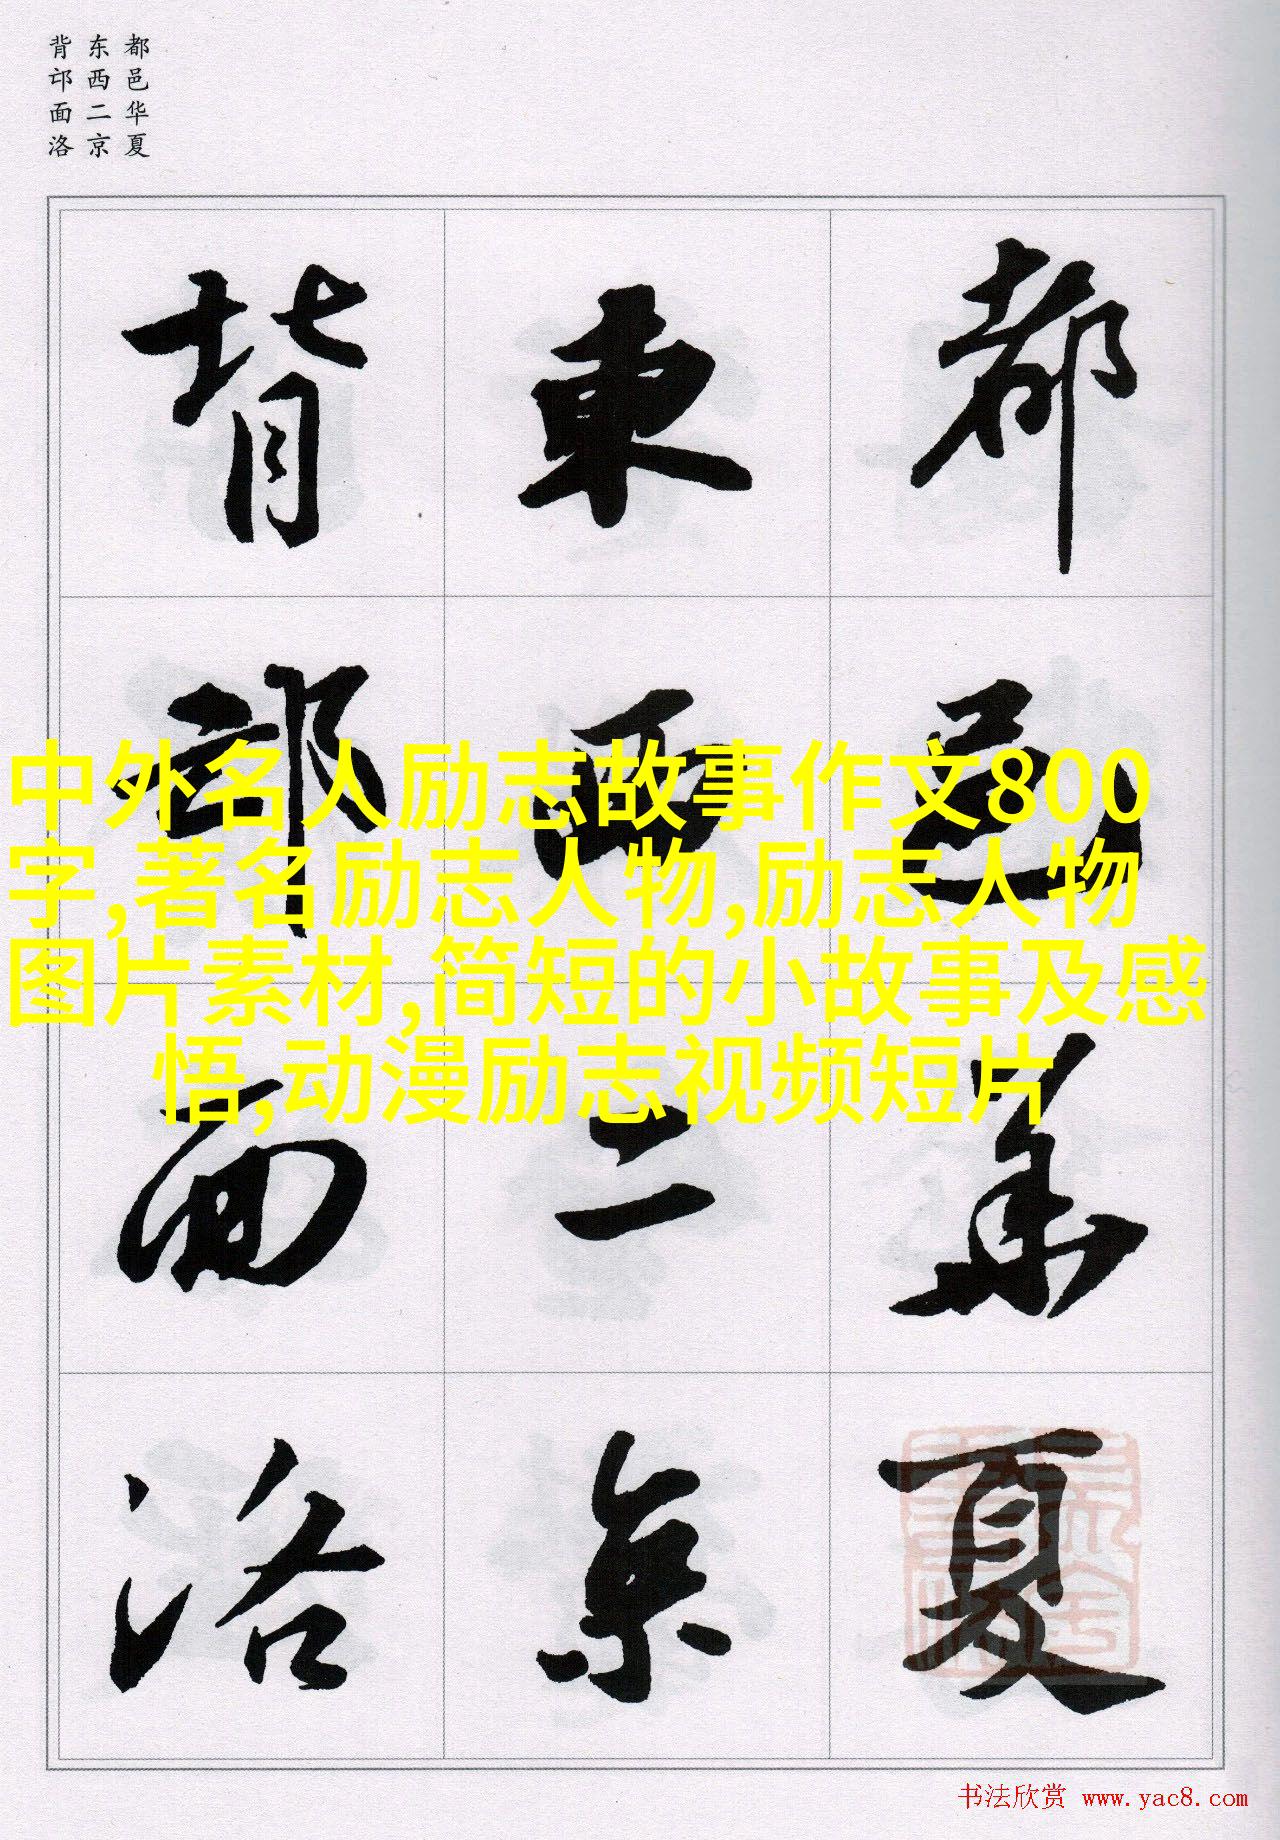 都邑华夏
东西二京
背邙面洛
都邑華夏
東西二京
背邙面洛
中外名人励志故事作文800
字,著名励志人物,励志人物
图片素材,简短的小故事及感
悟,动漫励志视频短片
书法欣赏 www.yac8.com